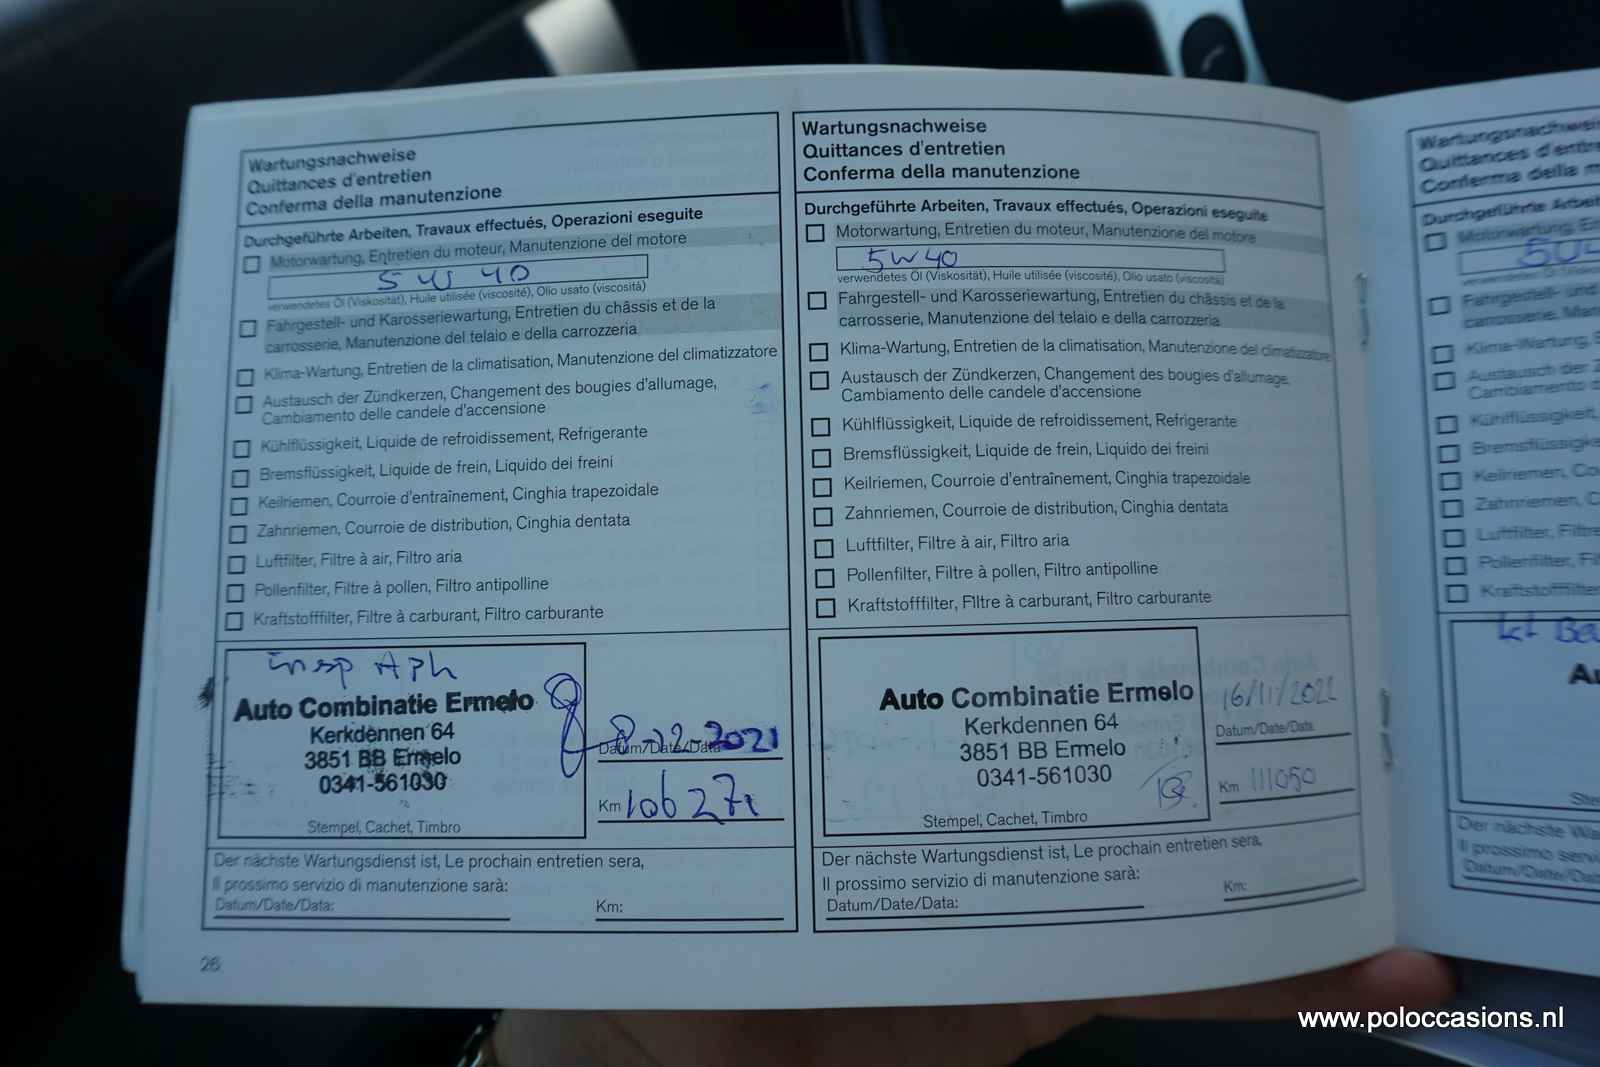 Wartungsnachweise
Quittances d'entretien
Conferma della manutenzione
Durchgeführte Arbeiten, Travaux effectués, Operazioni eseguite
Motorwartung, Entretien du moteur, Manutenzione del motore
5W40
verwendetes Öl (Viskosität), Huile utilisée (viscosité), Olio usato (viscosità)
Fahrgestell- und Karosseriewartung, Entretien du châssis et de la
carrosserie, Manutenzione del telaio e della carrozzeria
Klima-Wartung, Entretien de la climatisation, Manutenzione del climatizzatore
Austausch der Zündkerzen, Changement des bougies d'allumage,
Cambiamento delle candele d'accensione
Kühlflüssigkeit, Liquide de refroidissement, Refrigerante
Bremsflüssigkeit, Liquide de frein, Liquido dei freini
Keilriemen, Courroie d'entraînement, Cinghia trapezoidale
Zahnriemen, Courroie de distribution, Cinghia dentata
Luftfilter, Filtre à air, Filtro aria
Pollenfilter, Filtre à pollen, Filtro antipolline
Kraftstofffilter, Filtre à carburant, Filtro carburante
insp APh
Auto Combinatie Ermelo
Kerkdennen 64
3851 BB Ermelo
0341-561030
Stempel, Cachet, Timbro
8-12-2021
Datum/Date/Data
Km 106271
Der nächste Wartungsdienst ist, Le prochain entretien sera,
Il prossimo servizio di manutenzione sarà:
Datum/Date/Data: Km:
26
Wartungsnachweise
Quittances d'entretien
Conferma della manutenzione
Durchgeführte Arbeiten, Travaux effectués, Operazioni eseguite
Motorwartung, Entretien du moteur, Manutenzione del motore
5W40
verwendetes Öl (Viskosität), Huile utilisée (viscosité), Olio usato (viscosità)
Fahrgestell- und Karosseriewartung, Entretien du châssis et de la
carrosserie, Manutenzione del telaio e della carrozzeria
Klima-Wartung, Entretien de la climatisation, Manutenzione del climatizzatore
Austausch der Zündkerzen, Changement des bougies d'allumage,
Cambiamento delle candele d'accensione
Kühlflüssigkeit, Liquide de refroidissement, Refrigerante
Bremsflüssigkeit, Liquide de frein, Liquido dei freini
Keilriemen, Courroie d'entraînement, Cinghia trapezoidale
Zahnriemen, Courroie de distribution, Cinghia dentata
Luftfilter, Filtre à air, Filtro aria
Pollenfilter, Filtre à pollen, Filtro antipolline
Kraftstofffilter, FIltre à carburant, Filtro carburante
Auto Combinatie Ermelo
Kerkdennen 64
3851 BB Ermelo
0341-561030
Stempel, Cachet, Timbro
16/11/2022
Datum/Date/Data
Km 111050
Der nächste Wartungsdienst ist, Le prochain entretien sera,
Il prossimo servizio di manutenzione sarà:
Datum/Date/Data: Km:
Wartungsnachweise
Quittances d'entre
Conferma della m
Durchgeführte Arbeit
Motorwartung, E
Fahrgestell- und
carrosserie, Man
Klima-Wartung, E
Austausch der Z
Cambiamento
Kühlflüssigkeit,
Bremsflüssigke
Keilriemen, Co
Zahnriemen, C
Luftfilter, Filtre
Pollenfilter, Fil
Kraftstofffilter
Au
Ste
Der nächste Wa
Il prossimo servi
Datum/Date/Da
www.poloccasions.nl